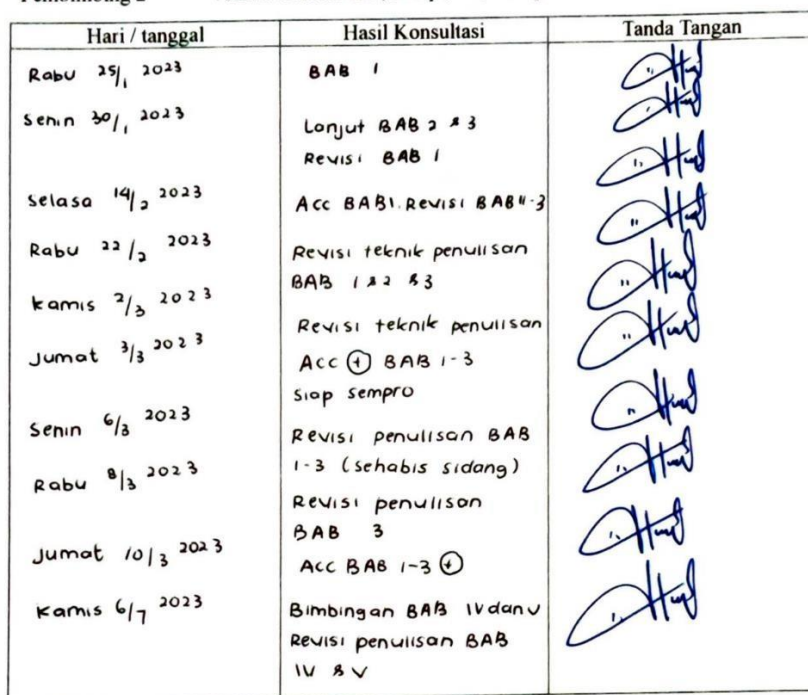 Hari / tanggal Hasil Konsultasi Tanda Tangan
Rabu 25/1 2023 BAB 1
Senin 30/1 2023 Lanjut BAB 2 & 3
Revisi BAB 1
Selasa 14/2 2023 Acc BAB 1. Revisi BAB II-3
Rabu 22/2 2023 Revisi teknik penulisan
BAB 1 & 2 & 3
Kamis 2/3 2023 Revisi teknik penulisan
Jumat 3/3 2023 Acc (+) BAB 1-3
Siap sempro
Senin 6/3 2023 Revisi penulisan BAB
1-3 (sehabis sidang)
Rabu 8/3 2023 Revisi penulisan
BAB 3
Jumat 10/3 2023 Acc BAB 1-3 (+)
Kamis 6/7 2023 Bimbingan BAB IV dan V
Revisi penulisan BAB
IV & V